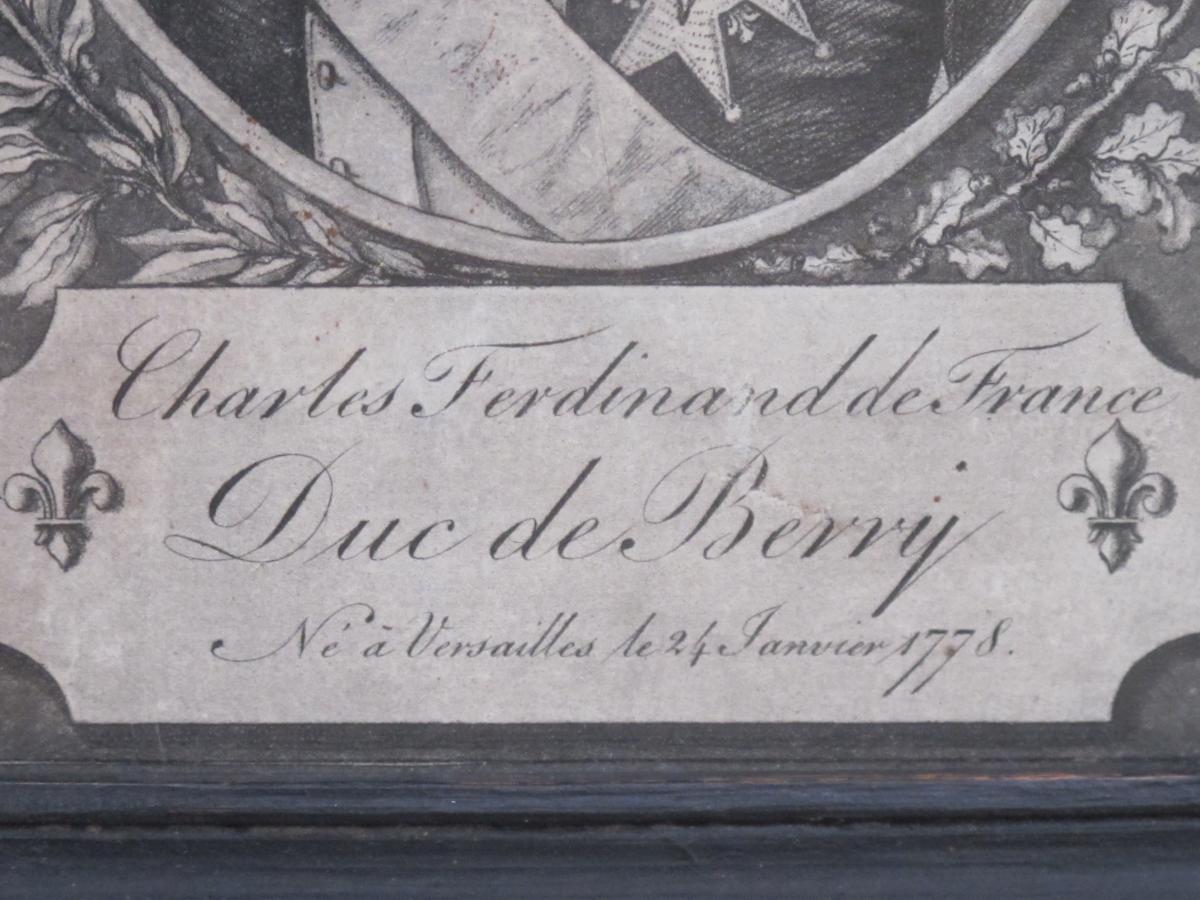 Charles Ferdinand de France
Duc de Berry
Né à Versailles le 24 Janvier 1778.